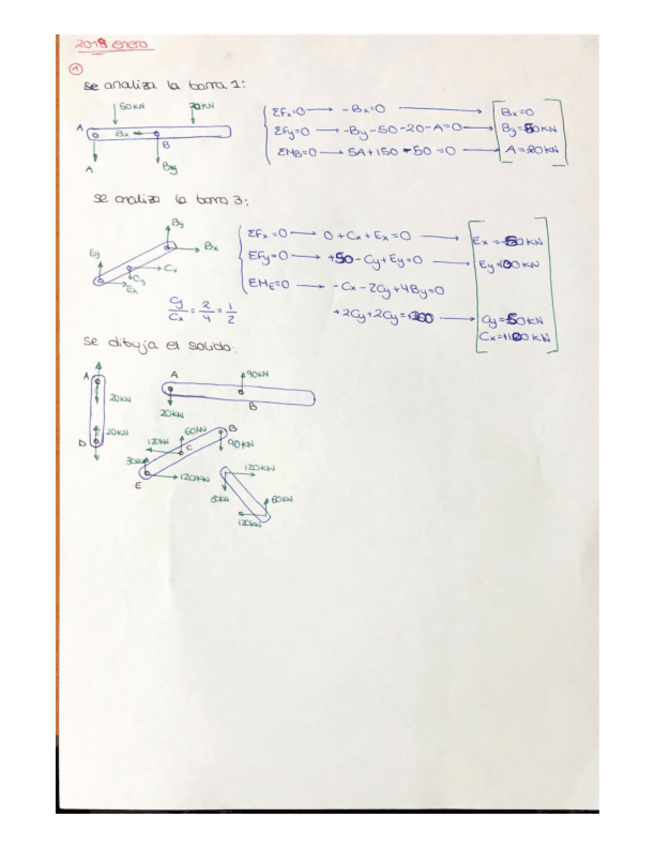 2018 enero
1
se analiza la barra 1:
50KN 20KN
A Bx B
A By
ΣFx=0 → -Bx=0 → Bx=0
ΣFy=0 → -By-50-20-A=0 → By=
ΣMB=0 → 5A+150-50=0 → A=-20KN
se analiza la barra 3:
By
Bx
Ey Cx
Cy
Ex
ΣFx=0 → 0+Cx+Ex=0 →
ΣFy=0 → +50-Cy+Ey=0 →
ΣME=0 → -Cx-2Cy+4By=0
Cy/Cx = 2/4 = 1/2
+2Cy+2Cy= →
se dibuja el solido:
A 20KN
20KN
D
A 90KN
B
20KN
60KN B
120KN C 90KN
30KN
E 120KN
120KN
60KN 60KN
120KN